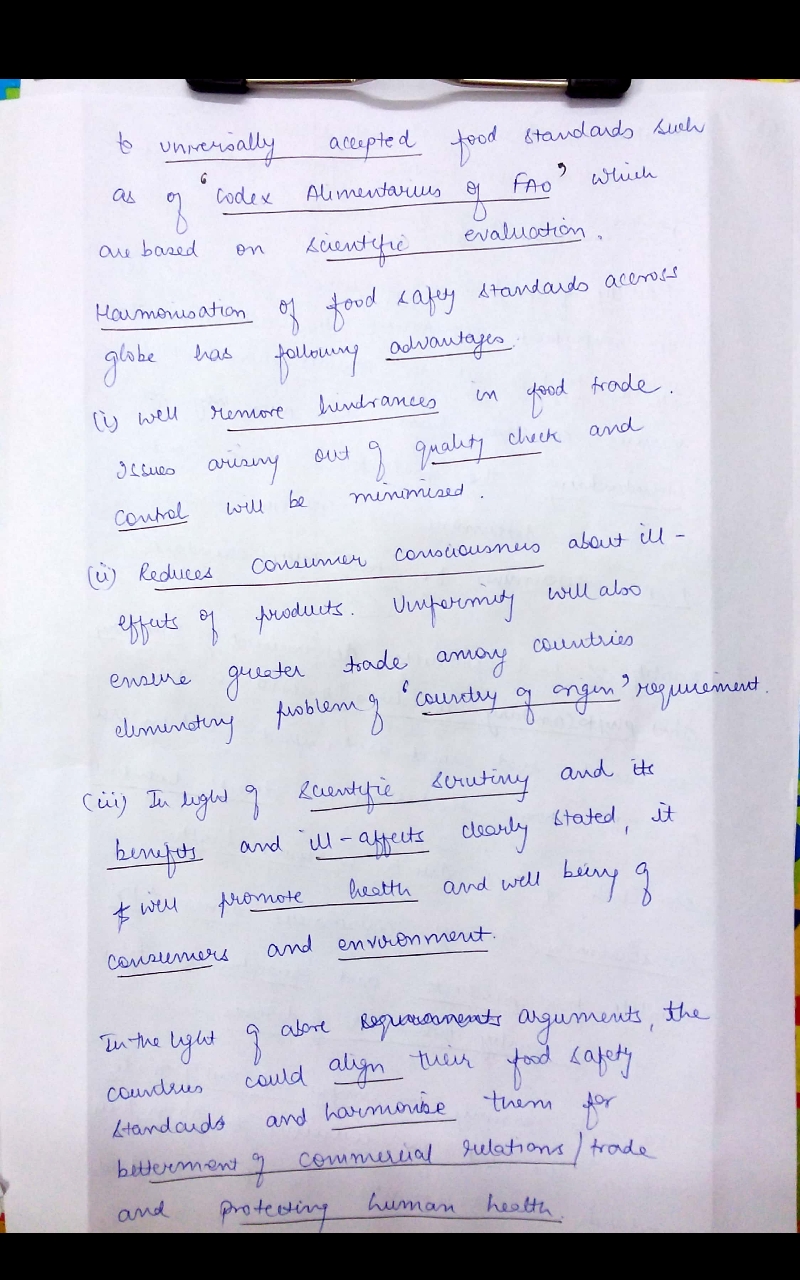 to universally accepted food standards such
as of 'Codex Alimentarius of FAO' which
are based on scientific evaluation.
Harmonisation of food safety standards accross
globe has following advantages.
(i) Will remove hindrances in food trade.
Issues arising out of quality check and
control will be minimised.
(ii) Reduces consumer consciousness about ill-
effects of products. Uniformity will also
ensure greater trade among countries
eliminating problem of 'country of origin' requirement.
(iii) In light of scientific scrutiny and its
benefits and ill-affects clearly stated, it
will promote health and well being of
consumers and environment.
In the light of above requirements arguments, the
countries could align their food safety
standards and harmonise them for
betterment of commercial relations/trade
and protecting human health.